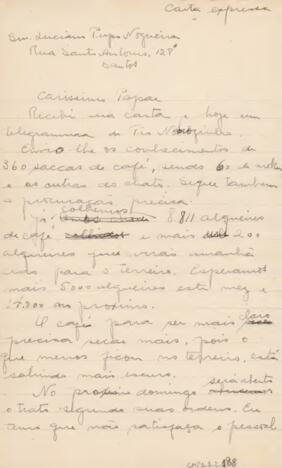 Carta expressa
Snr. Luciano Pupo Nogueira
Rua Santo Antonio, 128
Santos
Carissimo Papae
Recebi sua carta e hoje um
telegramma de Tio
Envio lhe os conhecimentos de
360 saccas de café, sendo 60 de
e as outras do chato. Segue tambem
a procuração precisa.
Já colhemos 8.811 alqueires
de café e mais 200
alqueires que irras amanhã
cedo para o terreiro. Esperamos
mais 5000 alqueires este mez e
no proximo.
O café para ser mais claro
precisa secar mais, pois o
que menos ficou no terreiro, está
sahindo mais escuro.
No domingo será aberto
o trato segundo suas ordens. Eu
acho que não satisfaça o pessoal